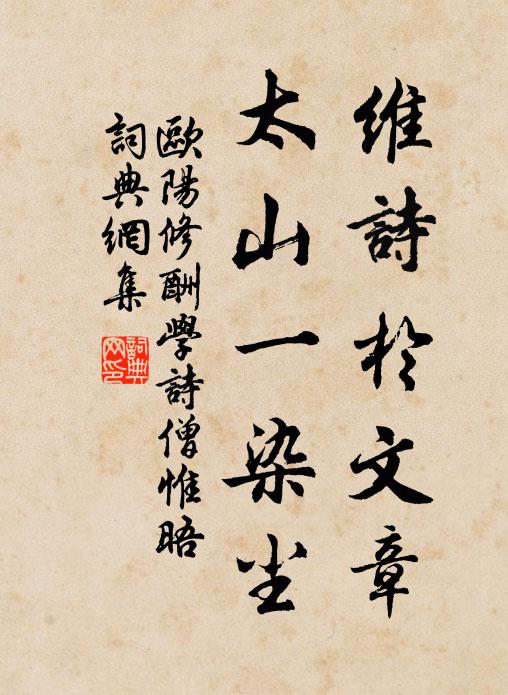 維詩於文章
太山一染尘
歐陽修酬學詩僧惟晤
詞典網集
詞典网印